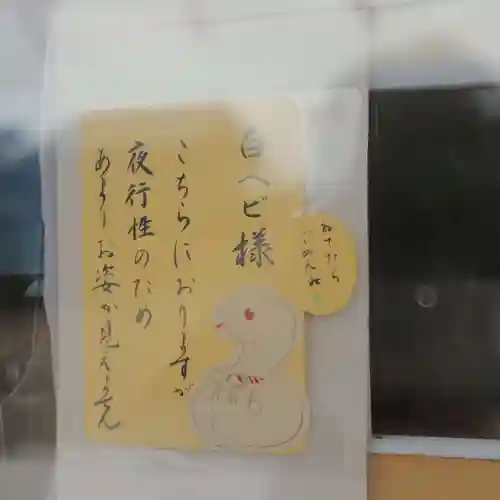 白ヘビ様
こちらにおりますが
夜行性のため
あまりお姿が見えません
ねてたら
ごめんね